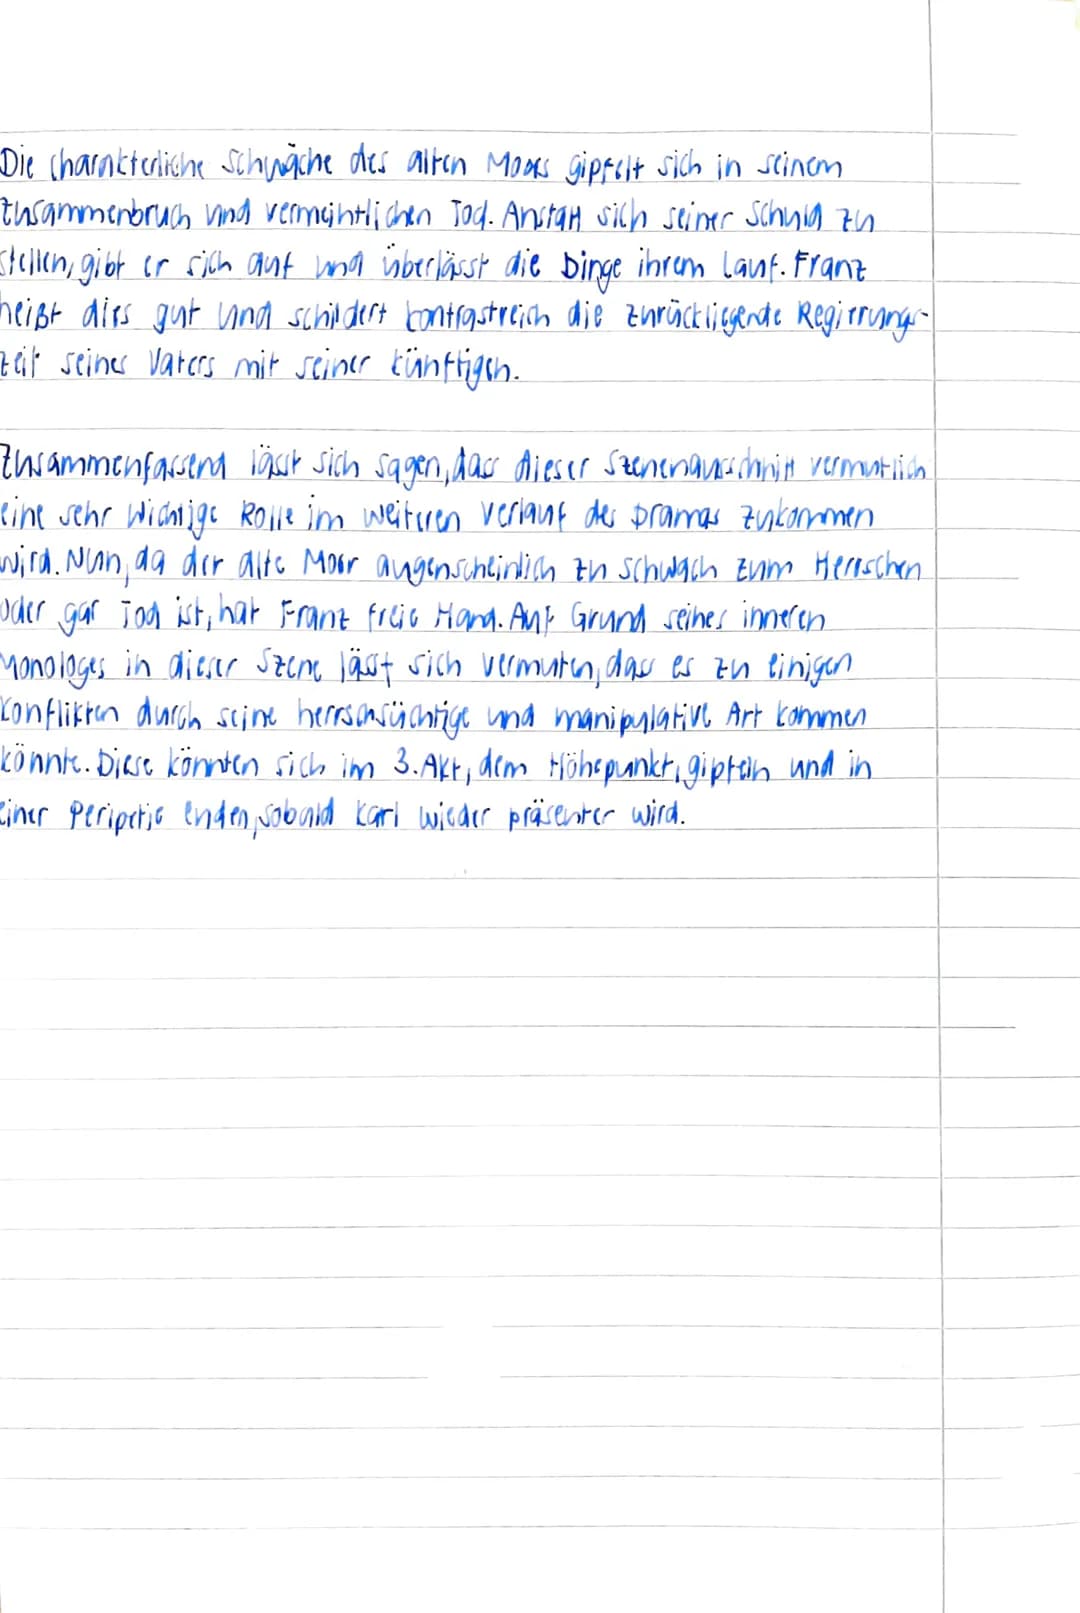 Die charakterliche Schwäche des alten Moors gipfelt sich in seinem
Zusammenbruch und vermeintlichen Tod. Anstatt sich seiner Schuld zu
stellen, gibt er sich auf und überlässt die Dinge ihrem Lauf. Franz
heißt dies gut und schildert kontrastreich die zurückliegende Regierungs-
zeit seines Vaters mit seiner künftigen.
Zusammenfassend lässt sich sagen, dass dieser Szenenausschnitt vermutlich
eine sehr wichtige Rolle im weiteren Verlauf des Dramas zukommen
wird. Nun, da der alte Moor augenscheinlich zu schwach zum Herrschen
oder gar Tod ist, hat Franz freie Hand. Auf Grund seines inneren
Monologes in dieser Szene lässt sich vermuten, dass es zu einigen
Konflikten durch seine herrschsüchtige und manipulative Art kommen
könnte. Diese könnten sich im 3. Akt, dem Höhepunkt, gipfeln und in
einer Peripetie enden, sobald Karl wieder präsenter wird.